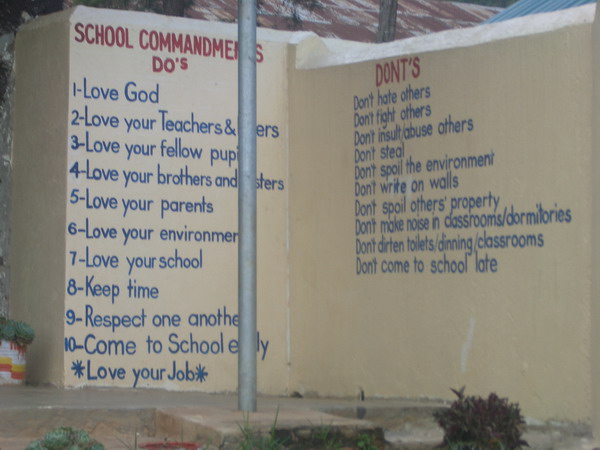 SCHOOL COMMANDMENTS
DO'S
1-Love God
2-Love your Teachers &
3-Love your fellow pupils
4-Love your brothers and sisters
5-Love your parents
6-Love your environment
7-Love your school
8-Keep time
9-Respect one another
10-Come to School early
*Love your Job*
DONT'S
Don't hate others
Don't fight others
Don't insult/abuse others
Don't steal
Don't spoil the environment
Don't write on walls
Don't spoil others' property
Don't make noise in classrooms/dormitories
Don't dirten toilets/dinning/classrooms
Don't come to school late